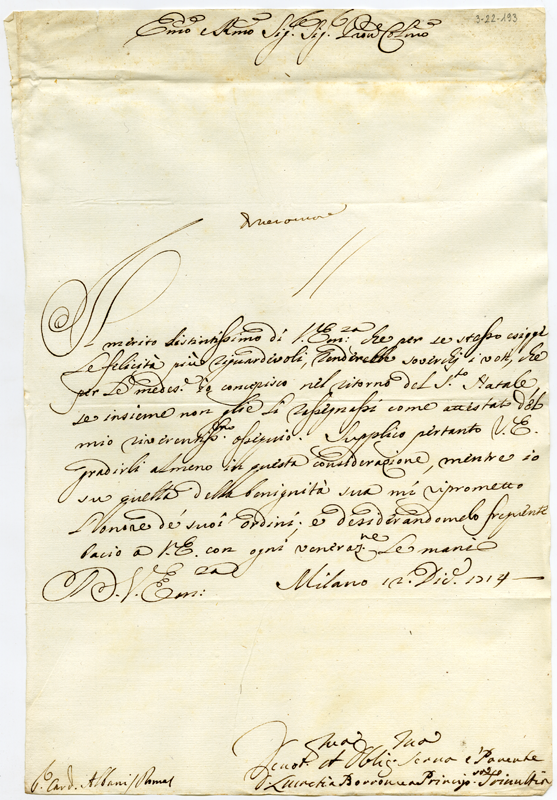 3-22-193
Em̃o e Rm̃o Sig.r Sig.r Pron̄e Col̄mo
Il merito distintissimo di V. Em:za che per se stesso esigge
le felicità più riguardevoli, renderebbe soverchi i voti, che
per le medes.e io concepisco nel ritorno del S.to Natale,
se insieme non glie li rassegnassi come attestati del
mio riverentiss.mo ossequio. Supplico pertanto V. E.
gradirli almeno in questa considerazione, mentre io
su quella della benignità sua mi riprometto
l'onore de' suoi ordini; e desiderandomelo frequente
bacio a V. E. con ogni veneraz.ne le mani
D. V. Em:za Milano 12. Dic.e 1714
S.r Card. Albani Roma
Sua Sua
Devot. et Oblig. Serva e Parente
Lucretia Borromea Princip.ssa Trivultia